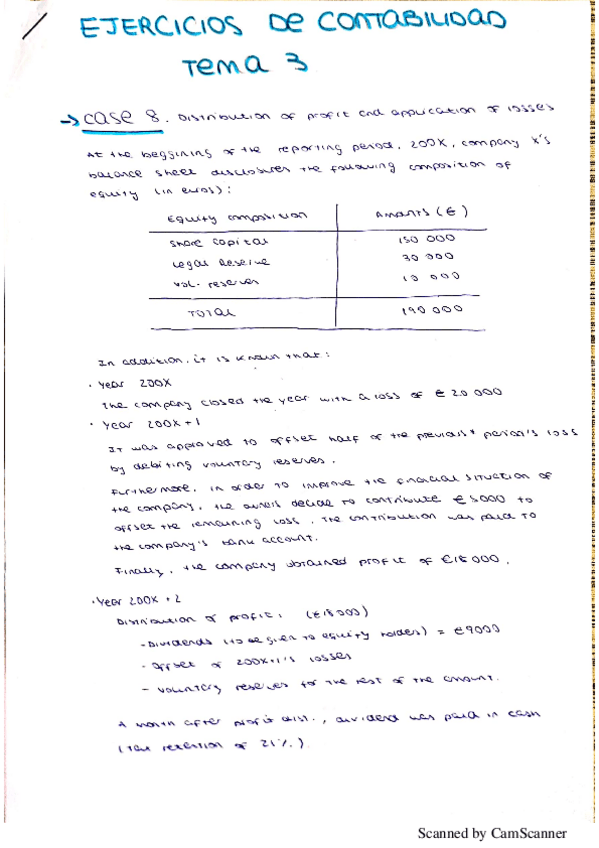 EJERCICIOS DE CONTABILIDAD
Tema 3
→ Case 8. Distribution of profit and application of losses
At the beggining of the reporting period, 200X, company X's
balance sheet disclosures the following composition of
equity (in euros):
Equity composition Amants (€)
Share capital 150 000
Legal Reserve 30 000
Vol. reserves 10 000
TOTAL 190 000
In addition, it is known that:
· Year 200X
The company closed the year with a loss of € 20 000
· Year 200X+1
It was approved to offset half of the previous period's loss
by debiting voluntary reserves.
Furthermore, in order to improve the financial situation of
the company, the owners decide to contribute € 5000 to
offset the remaining loss. The contribution was paid to
the company's bank account.
Finally, the company obtained profit of €18 000.
· Year 200X+2
Distribution of profit: (€18 000)
- Dividends (to be given to equity holders) = €9000
- Offset of 200X+1's losses
- Voluntary reserves for the rest of the amount.
A month after profit dist., dividend was paid in cash
(tax retention of 21%.)
Scanned by CamScanner